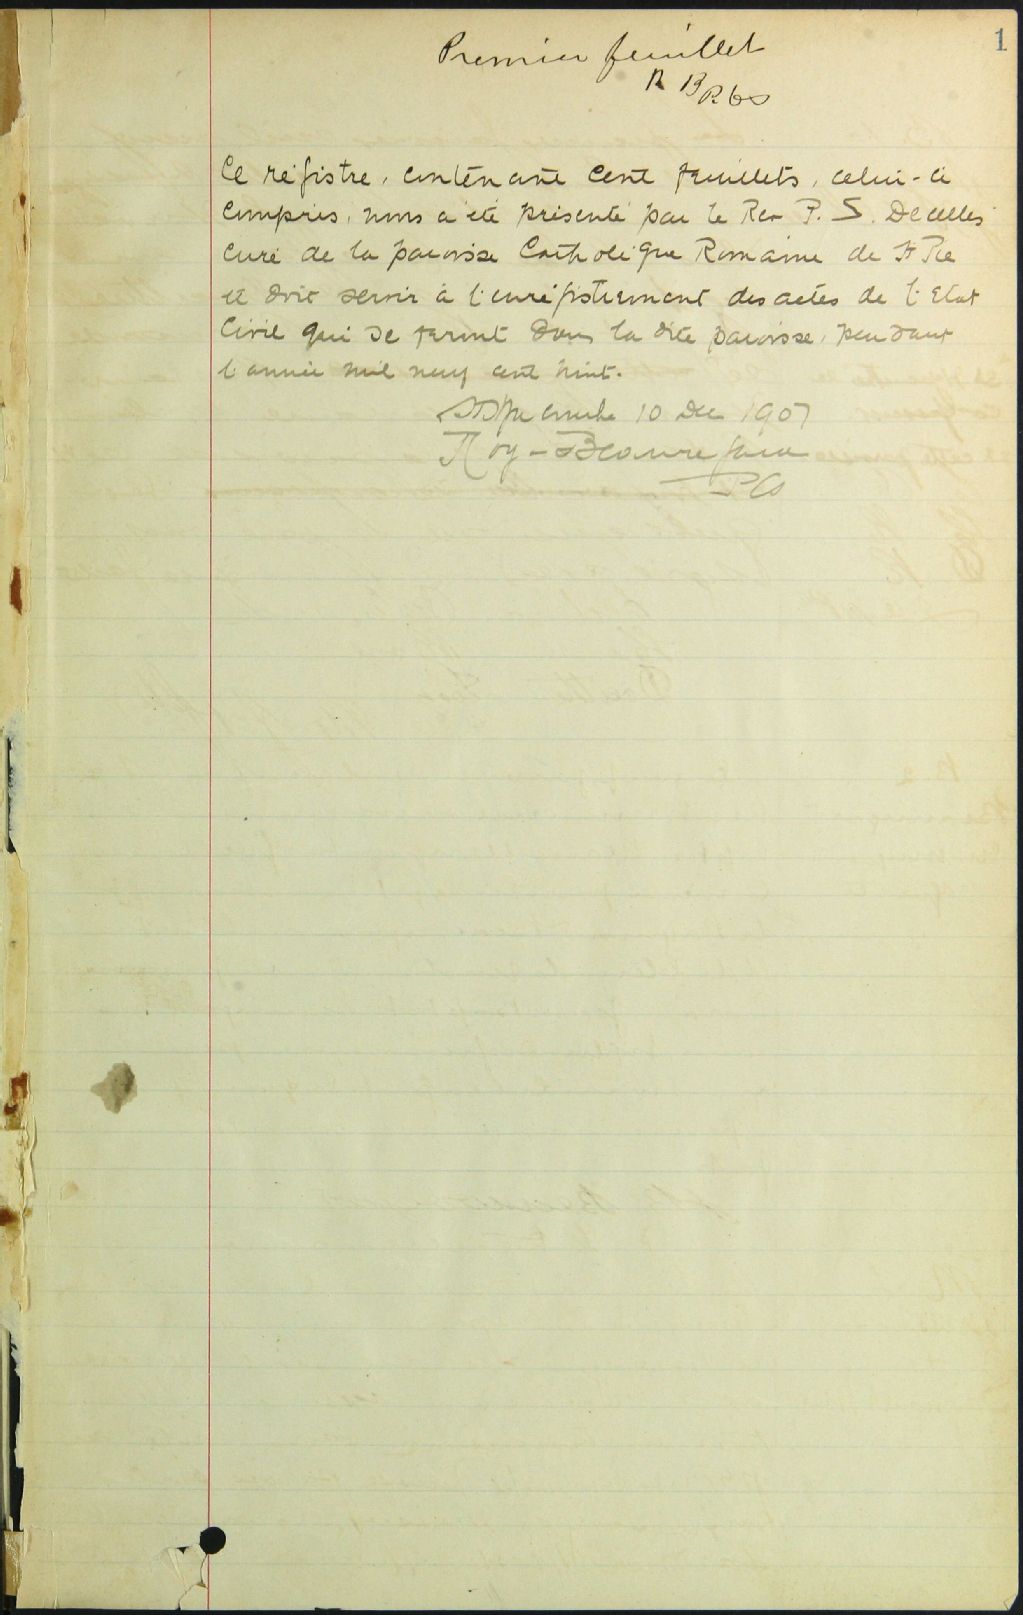 1
Premier feuillet
R B P.C.S
Ce régistre, contenant cent feuillets, celui-ci
compris, nous a été présenté par le Rev P. S. Decelles
curé de la paroisse Catholique Romaine de St Pie
et doit servir à l'enrégistrement des actes de l'Etat
Civil qui se feront dans la dite paroisse, pendant
l'année mil neuf cent huit.
St Hyacinthe 10 Dec 1907
Roy-Beauregard
PCS